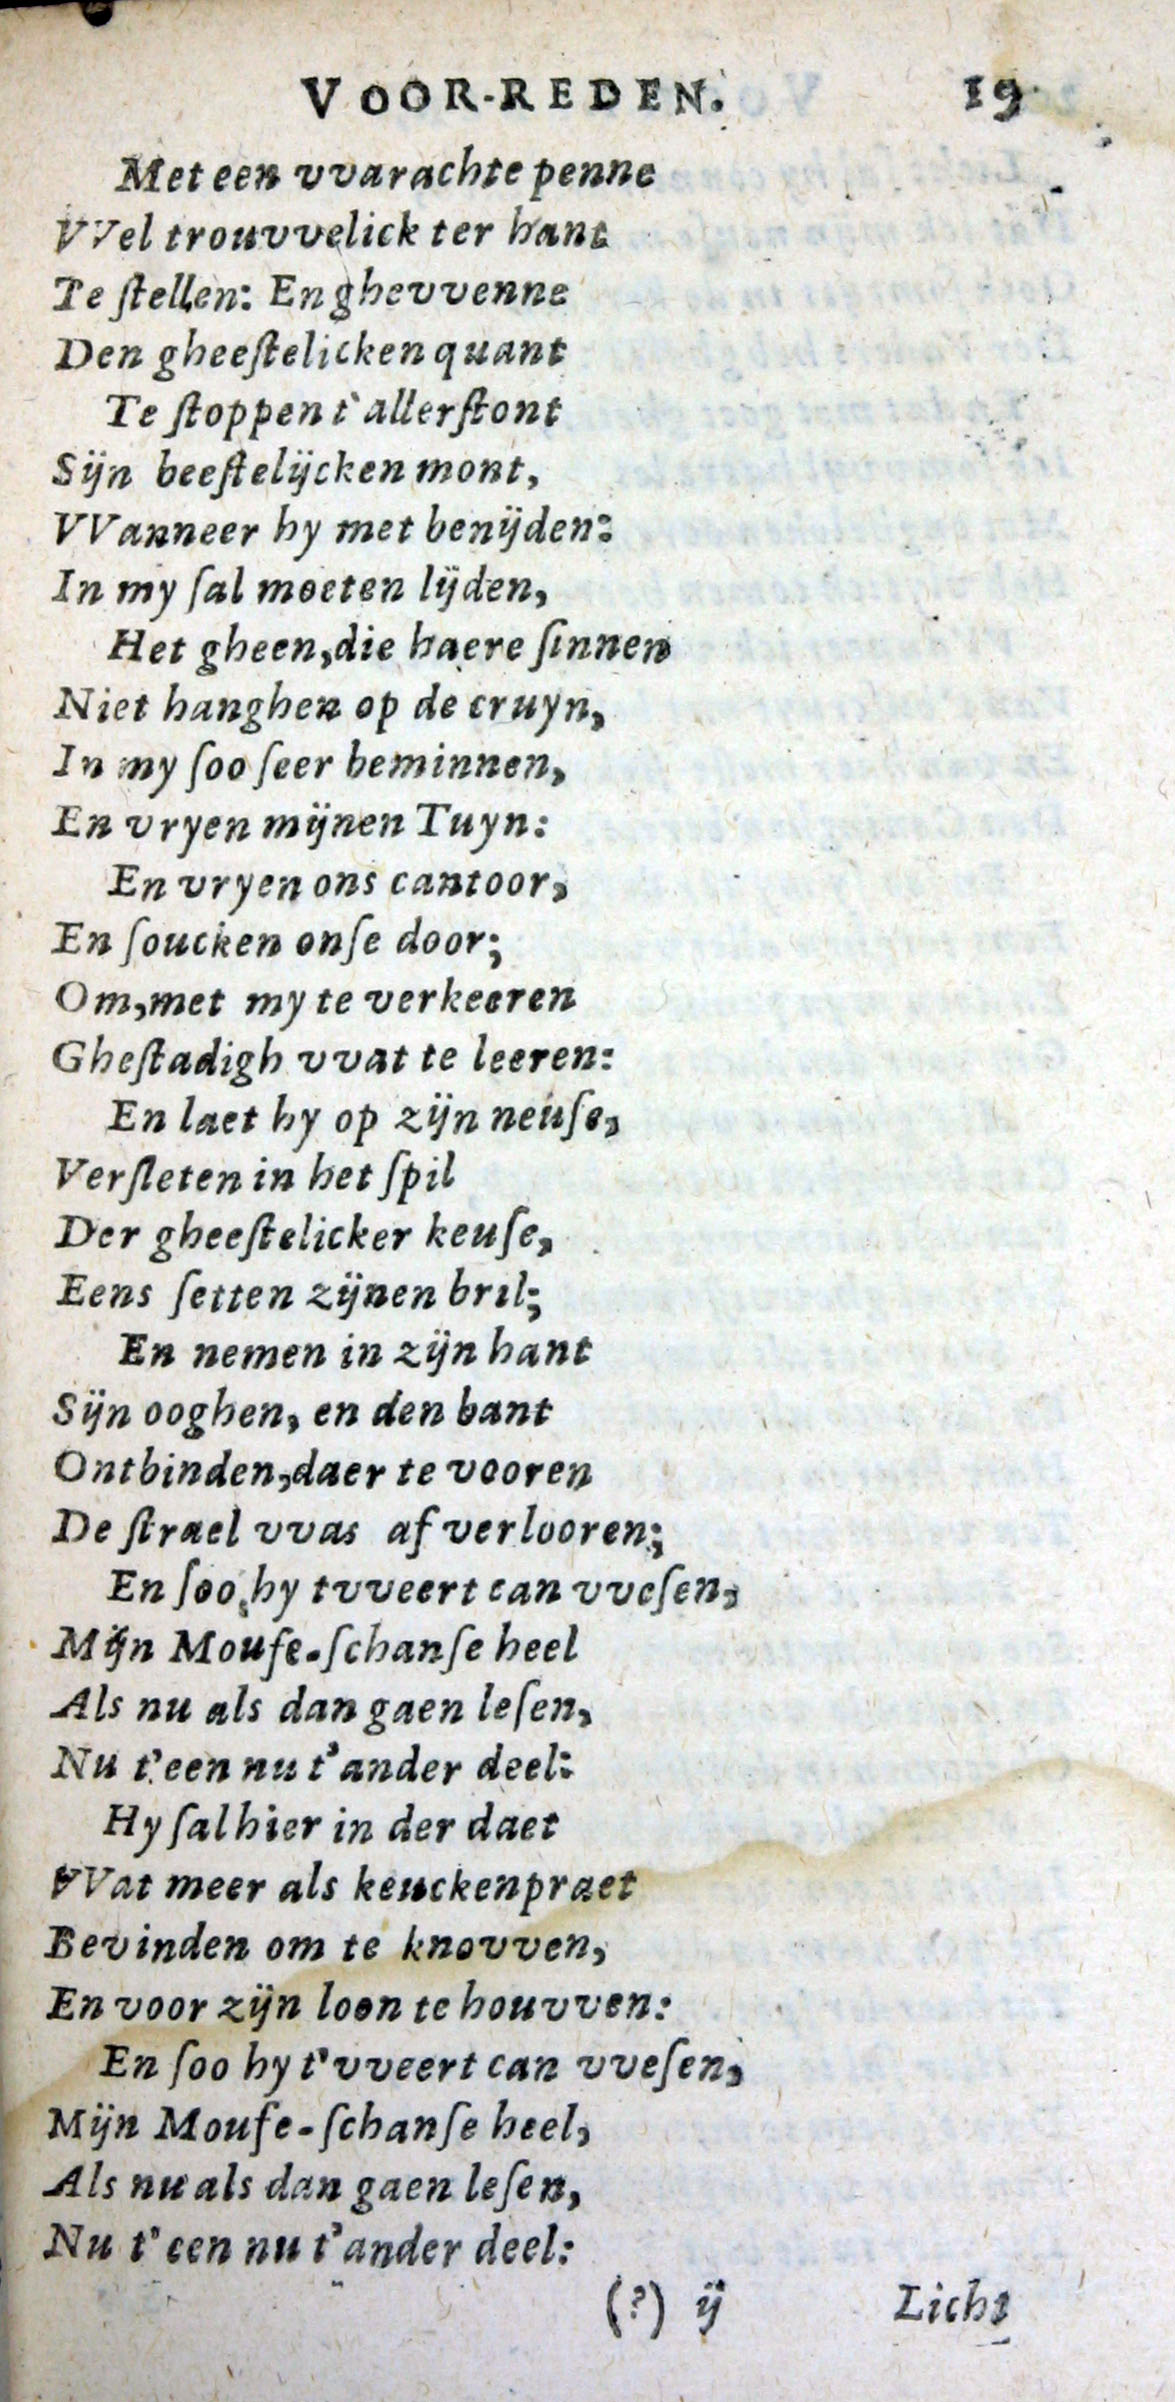 VOOR-REDEN. 19
Met een vvarachte penne
VVel trouvvelick ter hant
Te ſtellen: En ghevvenne
Den gheeſtelicken quant
Te ſtoppen t'allerſtont
Sijn beeſtelijcken mont,
VVanneer hy met benijden:
In my ſal moeten lijden,
Het gheen, die haere ſinnen
Niet hanghen op de cruyn,
In my ſoo ſeer beminnen,
En vryen mijnen Tuyn:
En vryen ons cantoor,
En ſoucken onſe door;
Om, met my te verkeeren
Gheſtadigh vvat te leeren:
En laet hy op zijn neuſe,
Verſleten in het ſpil
Der gheeſtelicker keuſe,
Eens ſetten zijnen bril;
En nemen in zijn hant
Sijn ooghen, en den bant
Ontbinden, daer te vooren
De ſtrael vvas af verlooren;
En ſoo hy tvveert can vveſen,
Mijn Mouſe-ſchanſe heel
Als nu als dan gaen leſen,
Nu t'een nu t'ander deel:
Hy ſal hier in der daet
VVat meer als keuckenpraet
Bevinden om te knovven,
En voor zijn loon te houvven:
En ſoo hy t'vveert can vveſen,
Mijn Mouſe-ſchanſe heel,
Als nu als dan gaen leſen,
Nu t'een nu t'ander deel:
(?) ij Licht